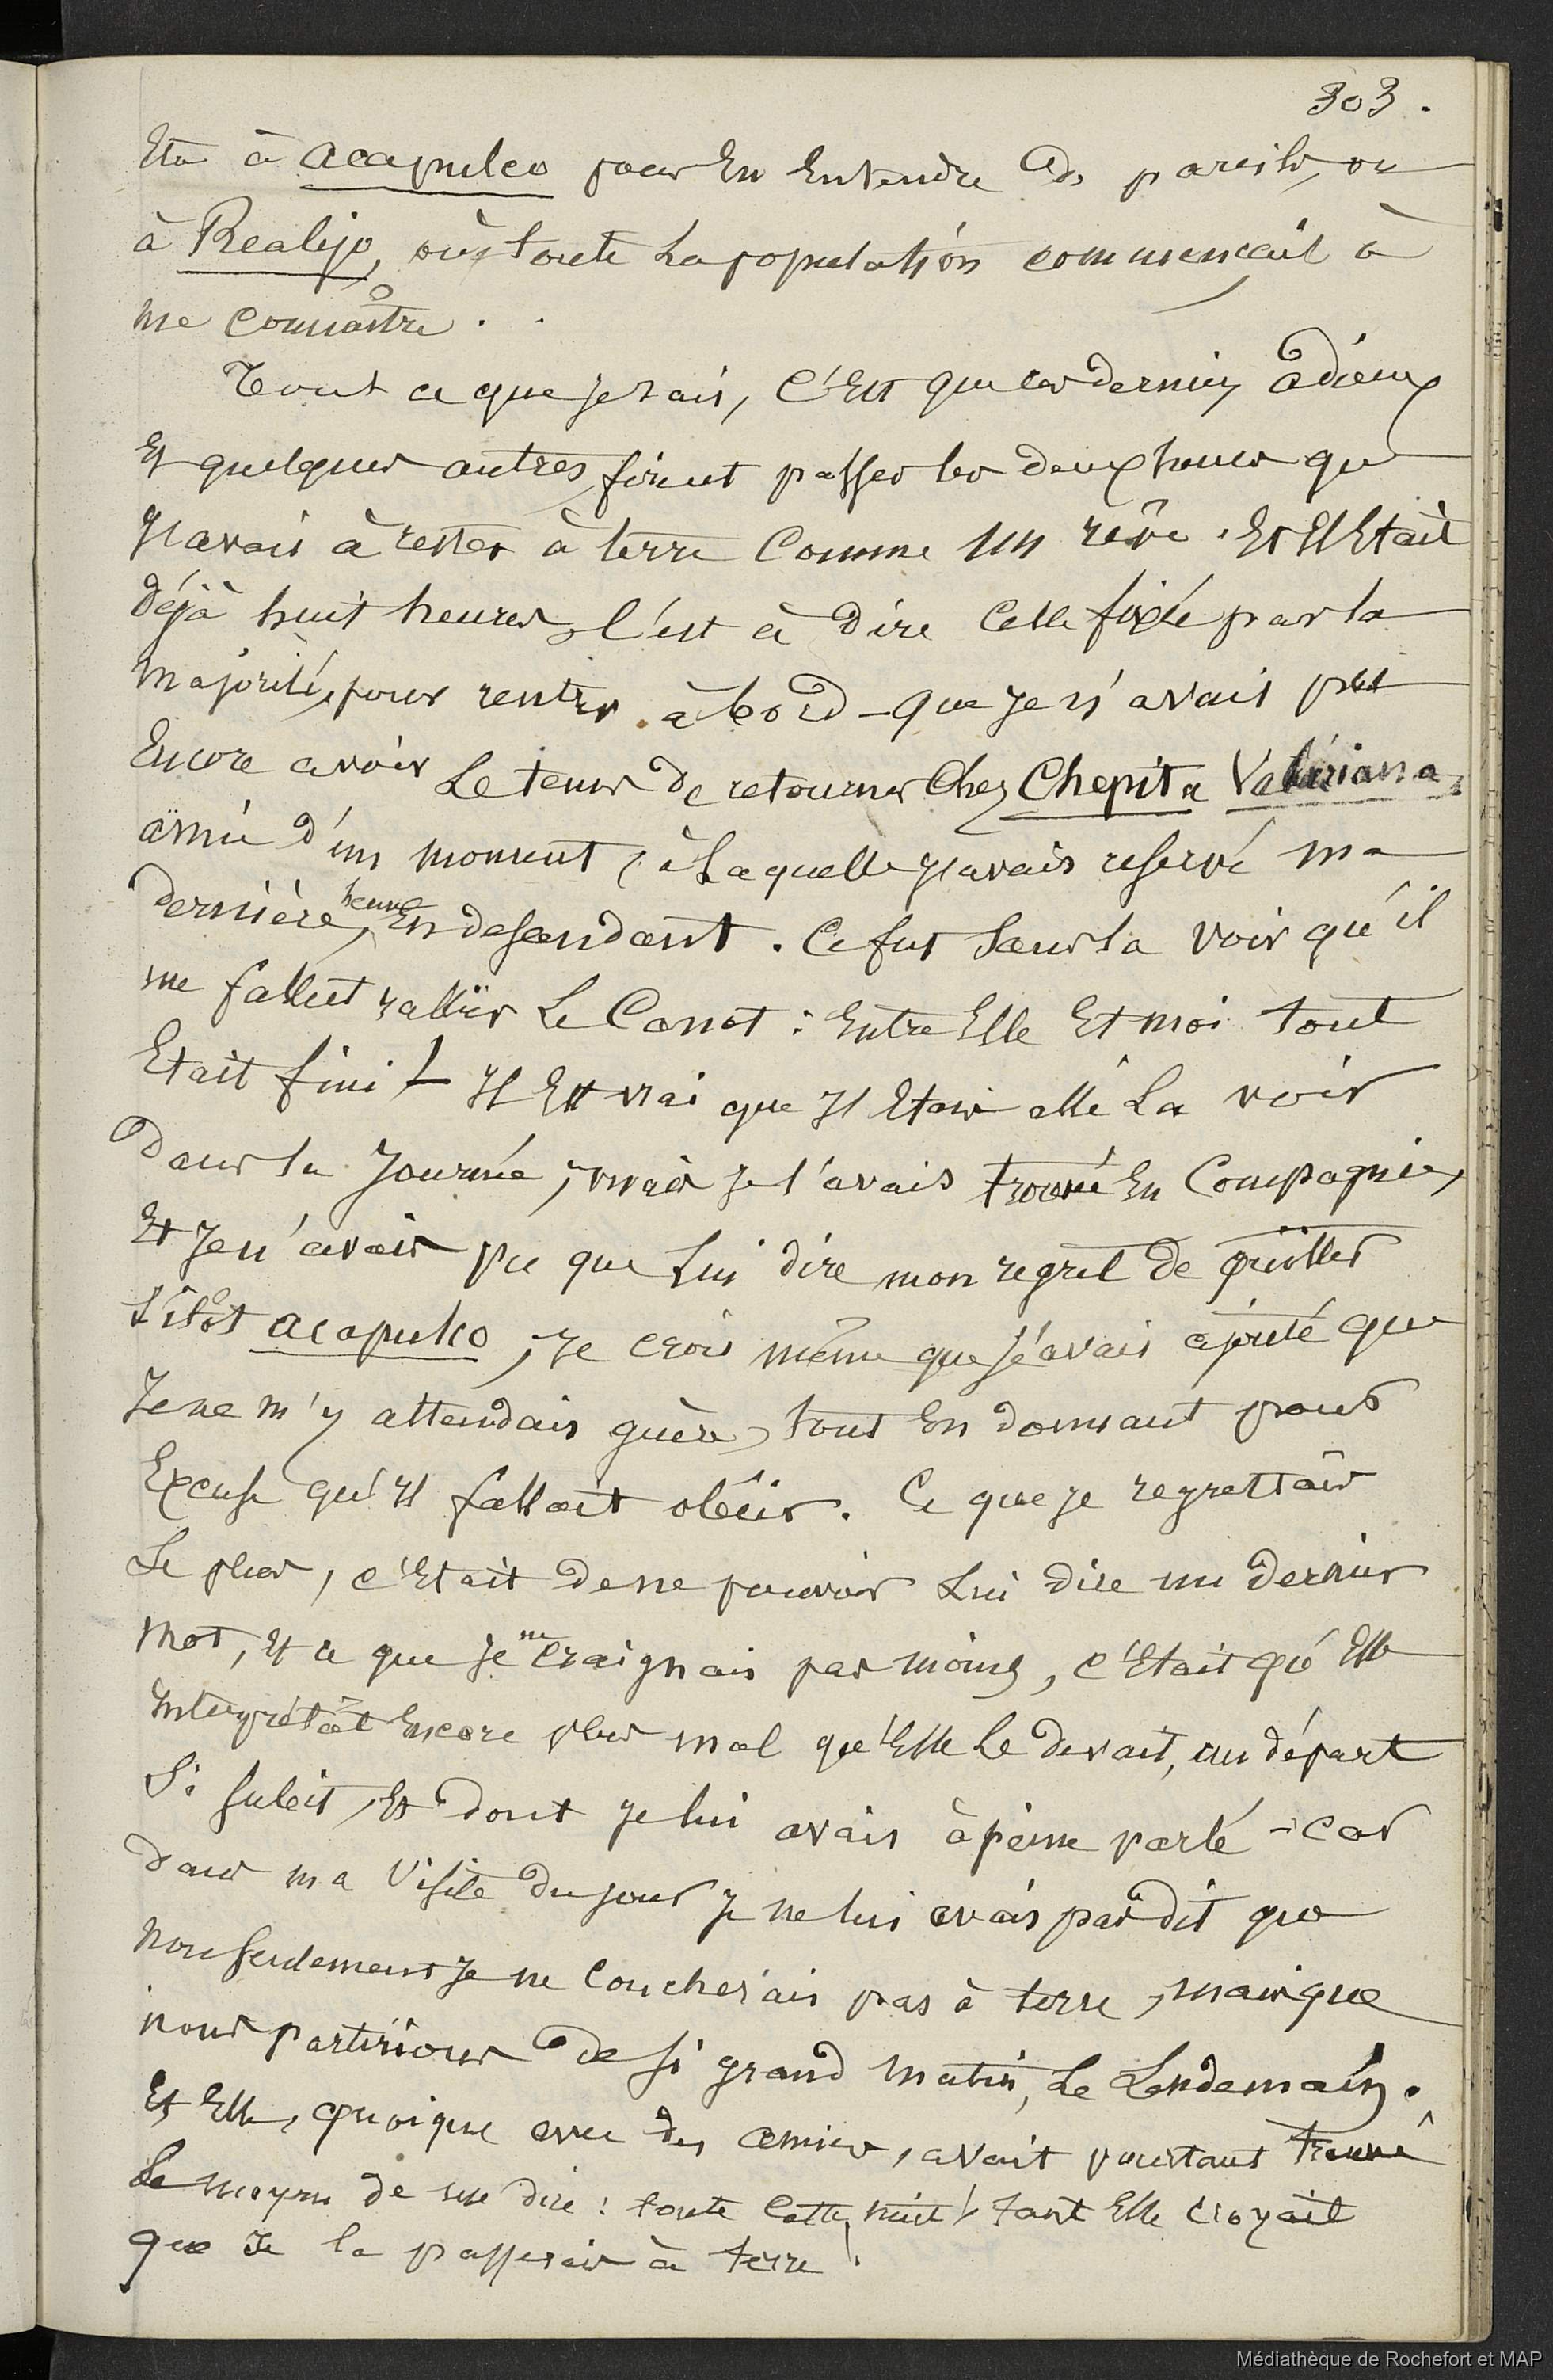 303.
Eté à Acapulco pour En Entendre de pareils, ou
à Realijo, où toute La population commençait à
me connaître . .
Tout ce que je sais, C'Est que ces derniers adieux
Et quelques autres, firent passer les deux heures que
J'avais à rester à terre Comme un rêve. Et Il Etait
déjà huit heures, C'est à dire Celle fixée par la
majorité, pour rentrer à bord – que Je n'avais pas
Encore avoir Le tems de retourner Chez Chepita Valériana,
amie d'un moment, à Laquelle J'avais reservé ma
dernière heure, En descendant. Ce fut Sans la voir qu'il
me fallut rallier Le Canot : Entre Elle Et moi tout
Etait fini ! – Il Est vrai que J'Etais allé La voir
Dans la Journée, mais Je l'avais trouvé En Compagnie,
Et Je n'avais pu que Lui dire mon regret de quitter
sitôt Acapulco ; Je crois même que J'avais ajouté que
Je ne m'y attendais guère, tout En donnant pour
Excuse qu'Il fallait obéir. Ce que je regrettais
Le plus, c'Etait de ne pouvoir Lui dire un dernier
mot, Et ce que Je ne Craignais pas moins, c'Etait qu'Elle
Interprétât Encore plus mal qu'Elle Le devait, un départ
Si subit, Et dont Je lui avais à peine parlé – car
dans ma Visite du jour Je ne lui avais pas dit que
non seulement Je ne Coucherais pas à terre, mais que
nous partirions de si grand matin, Le Lendemain.
Et Elle, quoique avec des amies, avait pourtant trouvé
Le moyen de me dire : toute Cette nuit ! tant Elle Croyait
que Je la passerais à terre !
Médiathèque de Rochefort et MAP